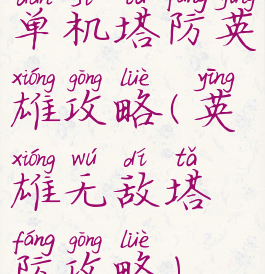 dān jī tǎ fáng yīng
单机塔防英
xióng gōng lüè yīng
雄攻略(英
xióng wú dí tǎ
雄无敌塔
fáng gōng lüè
防攻略)